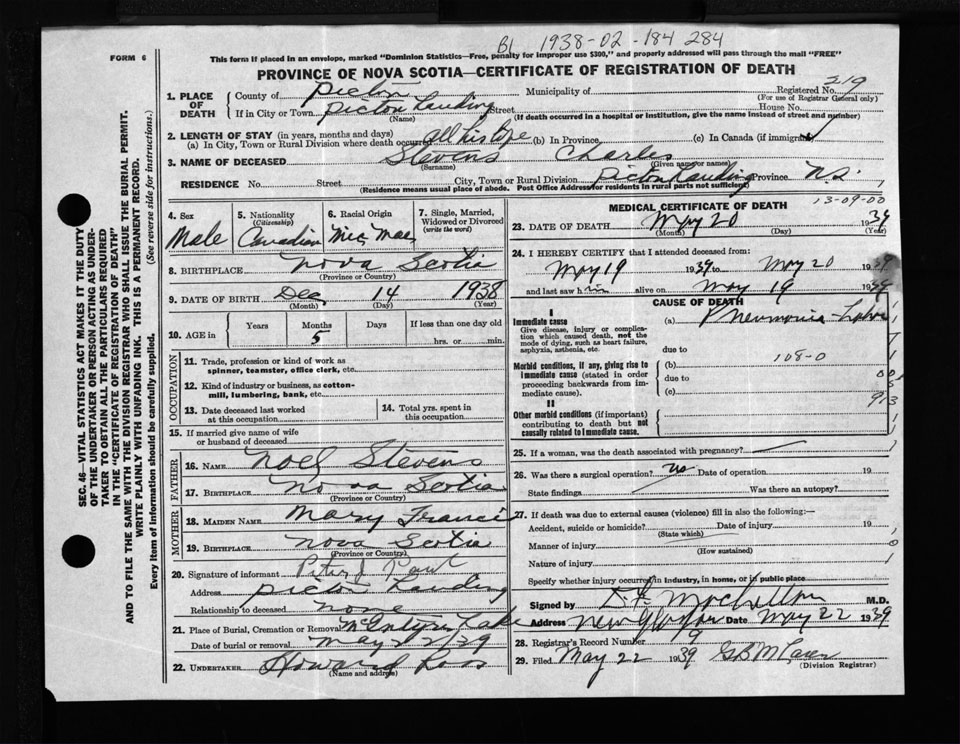 BL 1938-02-184 284
FORM 6
This form if placed in an envelope, marked "Dominion Statistics—Free, penalty for improper use $300," and properly addressed will pass through the mail "FREE"
PROVINCE OF NOVA SCOTIA—CERTIFICATE OF REGISTRATION OF DEATH
SEC. 46—VITAL STATISTICS ACT MAKES IT THE DUTY
OF THE UNDERTAKER OR PERSON ACTING AS UNDER-
TAKER TO OBTAIN ALL THE PARTICULARS REQUIRED
IN THE "CERTIFICATE OF REGISTRATION OF DEATH"
AND TO FILE THE SAME WITH THE DIVISION REGISTRAR WHO SHALL ISSUE THE BURIAL PERMIT.
WRITE PLAINLY WITH UNFADING INK. THIS IS A PERMANENT RECORD.
Every item of information should be carefully supplied. (See reverse side for instructions.)
1. PLACE OF DEATH
County of Pictou Municipality of Registered No. 219
(For use of Registrar General only)
If in City or Town Pictou Landing Street House No.
(Name) (If death occurred in a hospital or institution, give the name instead of street and number)
2. LENGTH OF STAY (in years, months and days)
(a) In City, Town or Rural Division where death occurred all his life (b) In Province (c) In Canada (if immigrant)
3. NAME OF DECEASED Stevens Charles
(Surname) (Given name or names)
RESIDENCE No. Street City, Town or Rural Division Pictou Landing Province N.S.
(Residence means usual place of abode. Post Office Address for residents in rural parts not sufficient)
4. Sex Male
5. Nationality (Citizenship) Canadian
6. Racial Origin Mic Mac
7. Single, Married, Widowed or Divorced (write the word)
8. BIRTHPLACE Nova Scotia
(Province or Country)
9. DATE OF BIRTH Dec 14 1938
(Month) (Day) (Year)
10. AGE in Years Months 5 Days If less than one day old hrs. or min.
OCCUPATION
11. Trade, profession or kind of work as spinner, teamster, office clerk, etc.
12. Kind of industry or business, as cotton-mill, lumbering, bank, etc.
13. Date deceased last worked at this occupation
14. Total yrs. spent in this occupation
15. If married give name of wife or husband of deceased
FATHER
16. NAME Noel Stevens
17. BIRTHPLACE Nova Scotia
(Province or Country)
MOTHER
18. MAIDEN NAME Mary Francis
19. BIRTHPLACE Nova Scotia
(Province or Country)
20. Signature of informant Peter J Paul
Address Pictou Landing
Relationship to deceased none
21. Place of Burial, Cremation or Removal McIntyre Lake
Date of burial or removal May 22 39
22. UNDERTAKER Howard Ross
(Name and address)
MEDICAL CERTIFICATE OF DEATH 13-09-00
23. DATE OF DEATH May 20 1939
(Month) (Day) (Year)
24. I HEREBY CERTIFY that I attended deceased from:
May 19 1939 to May 20 1939
and last saw him alive on May 19 1939
CAUSE OF DEATH
I
Immediate cause
Give disease, injury or complication which caused death, not the mode of dying, such as heart failure, asphyxia, asthenia, etc.
(a) Pneumonia-Lobar
due to
Morbid conditions, if any, giving rise to immediate cause (stated in order proceeding backwards from immediate cause).
(b) 108-0
due to
(c)
II
Other morbid conditions (if important) contributing to death but not causally related to immediate cause.
25. If a woman, was the death associated with pregnancy?
26. Was there a surgical operation? No Date of operation 19
State findings Was there an autopsy?
27. If death was due to external causes (violence) fill in also the following:—
Accident, suicide or homicide? Date of injury 19
(State which)
Manner of injury
(How sustained)
Nature of injury
Specify whether injury occurred in industry, in home, or in public place
Signed by M.D.
Address New Glasgow Date May 22 1939
28. Registrar's Record Number 19
29. Filed May 22 1939
(Division Registrar)